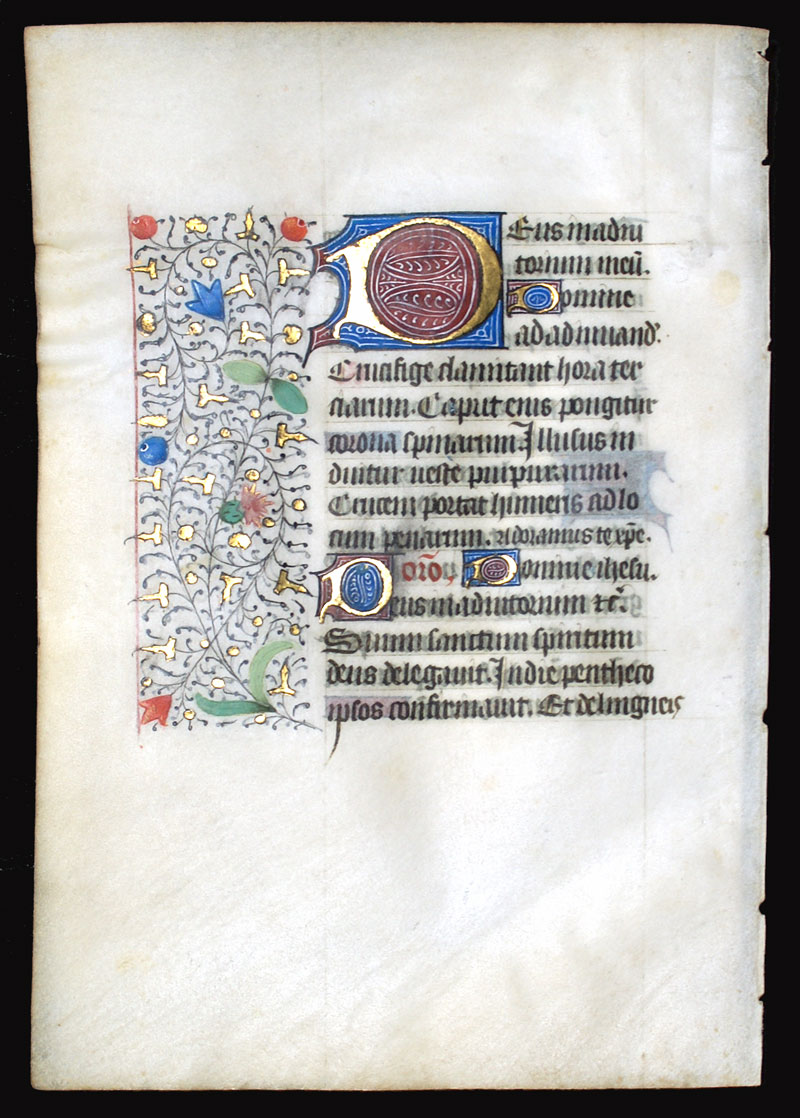 Deus in adiu
torium meū.
Domine
ad adiuuand'.
Crucifige clamitant hora ter
ciarum. Caput eius pongitur
corona spinarum. Illusus in
duitur ueste purpurarum.
Crucem portat humeris ad lo
cum penarum. Adoramus te xp̄e.
orō, Domine ihesu.
Deus in adiutorium ⁊c̃.
Suum sanctum spiritum
deus delegauit. In die pentheco
ipsos confirmauit. Et de linguis